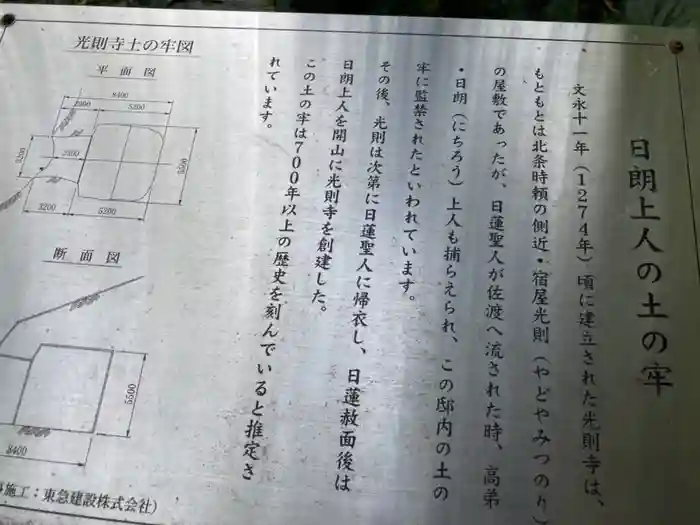 日朗上人の土の牢
文永十一年(1274年)頃に建立された光則寺は、
もともとは北条時頼の側近・宿屋光則(やどやみつのり)
の屋敷であったが、日蓮聖人が佐渡へ流された時、高弟
・日朗(にちろう)上人も捕らえられ、この邸内の土の
牢に監禁されたといわれています。
その後、光則は次第に日蓮聖人に帰依し、日蓮赦面後は
日朗上人を開山に光則寺を創建した。
この土の牢は700年以上の歴史を刻んでいると推定さ
れています。
光則寺土の牢図
平面図
8400
5200
2200
5500
3200
5200
断面図
5500
8400
施工:東急建設株式会社)